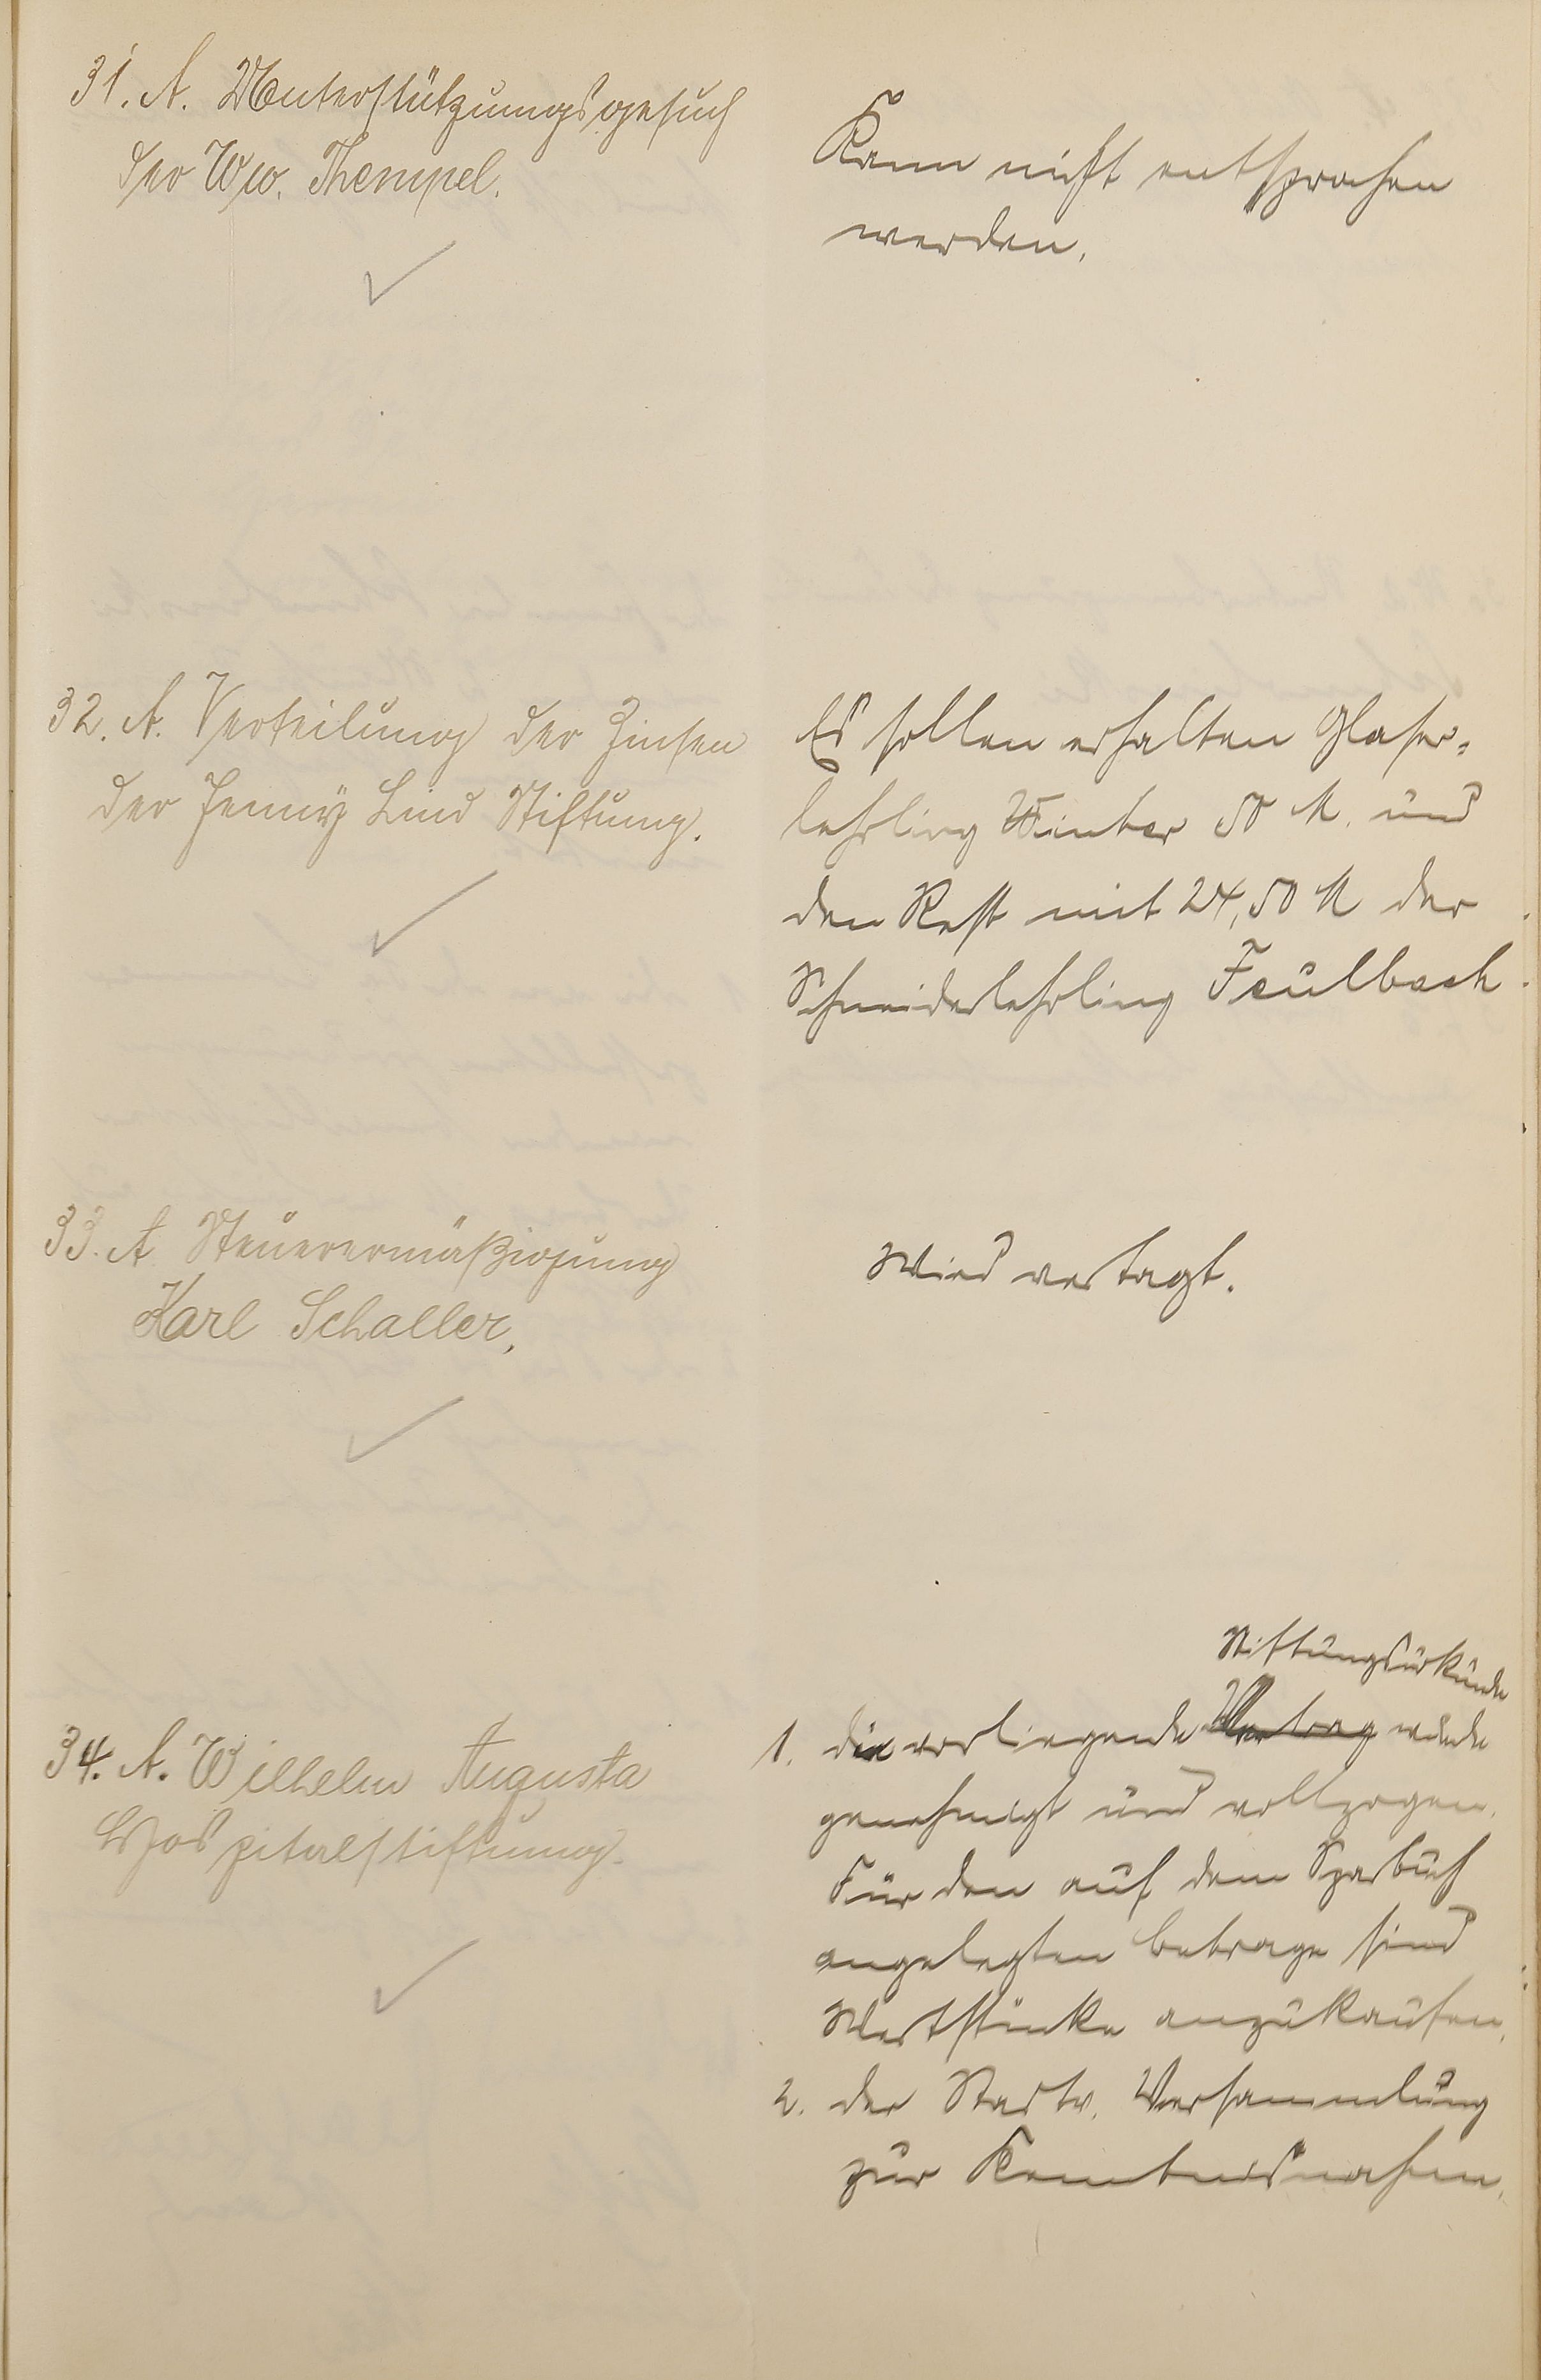 31. A. Unterstützungsgesuch
der Ww. Thempel.
Kann nicht entsprochen
werden.
32. A. Verteilung der Zinsen
der Jenny Lind Stiftung.
Es sollen erhalten Glaser=
lehrling Winter 50 M. und
den Rest mit 24,50 M der
Schneiderlehrling Feulbach.
33. A. Steuerermäßigung
Karl Schaller.
Wird vertagt.
34. A. Wilhelm Augusta
Hospitalstiftung.
Stiftungsurkunde
1. die vorliegende Vertrag wurde
genehmigt und vollzogen.
Für den auf dem Sparbuch
angelegten betrage sind
Wertstücke anzukaufen.
2. der Stadtv. Versammlung
zur Kenntnisnahme.